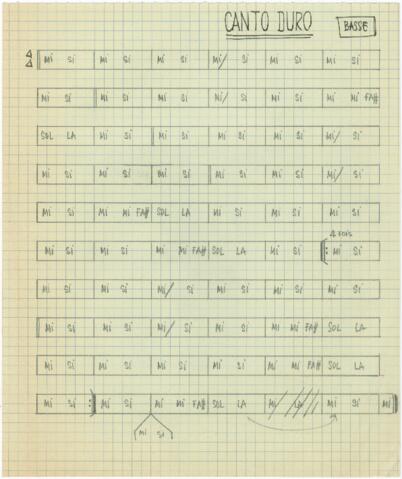 CANTO DURO BASSE
4 4 Mi Si Mi Si Mi Si Mi/ Si Mi Si Mi Si
Mi Si Mi Si Mi Si Mi/ Si Mi Si Mi Mi FA#
SOL LA Mi Si Mi Si Mi Si Mi Si Mi/ Si
Mi Si Mi Si Mi Si Mi Si Mi Si Mi/ Si
Mi Si Mi Mi FA# SOL LA Mi Si Mi Si Mi Si
4 FOIS
Mi Si Mi Si Mi Mi FA# SOL LA Mi Si Mi Si
Mi Si Mi Si Mi/ Si Mi Si Mi Si Mi Si
Mi Si Mi Si Mi/ Si Mi Si Mi Mi FA# SOL LA
Mi Si Mi Si Mi Si Mi Si Mi Mi FA# SOL LA
Mi Si Mi Si Mi Mi FA# SOL LA Mi LA Mi Si Mi
Mi Si